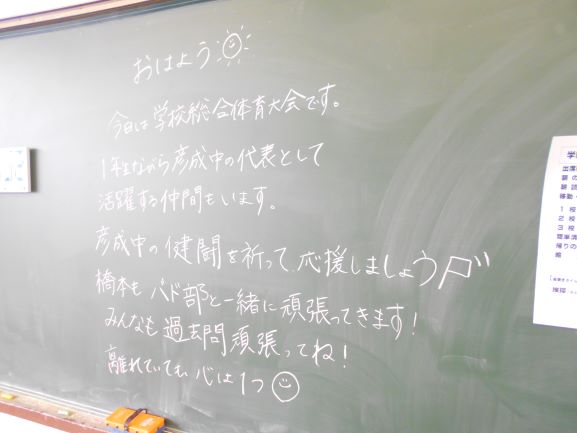 おはよう
今日は学校総合体育大会です。
1年生ながら彦成中の代表として
活躍する仲間もいます。
彦成中の健闘を祈って、応援しましょう
橋本も バド部と一緒に頑張ってきます!
みんなも過去問頑張ってね!
離れていても 心は1つ
学
出席
朝の
朝読
移動
1校
2校
3校
簡単清
帰りの